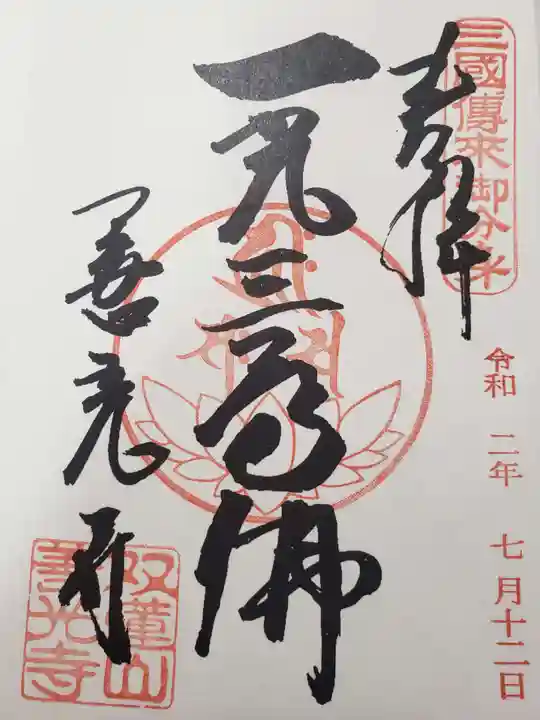 三國傳来御分身
奉拝
令和 二年 七月十二日
一光三尊佛
善光寺
双蓮山
善光寺